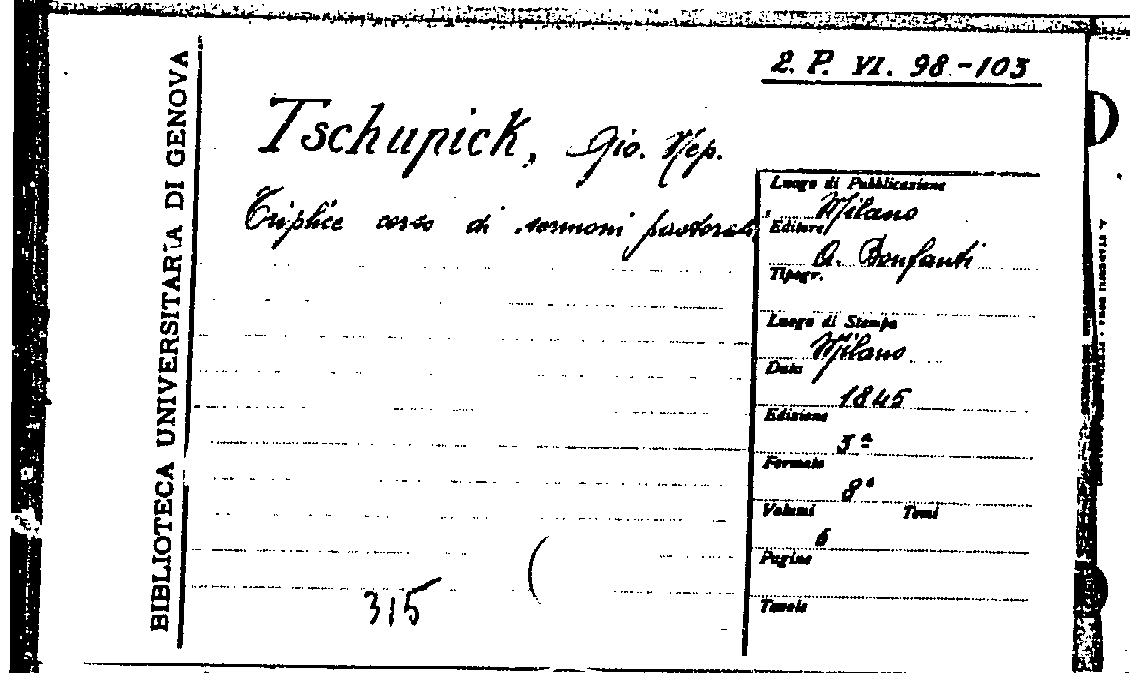 2. P. VI. 98-103
BIBLIOTECA UNIVERSITARIA DI GENOVA
Tschupick, Gio. Nep.
Triplice corso di sermoni pastorali
Luogo di Pubblicazione
Milano
Editore
A. Bonfanti
Tipogr.
Luogo di Stampa
Milano
Data
1845
Edizione
3ª
Formato
8°
Volumi Tomi
6
Pagine
Tavole
315